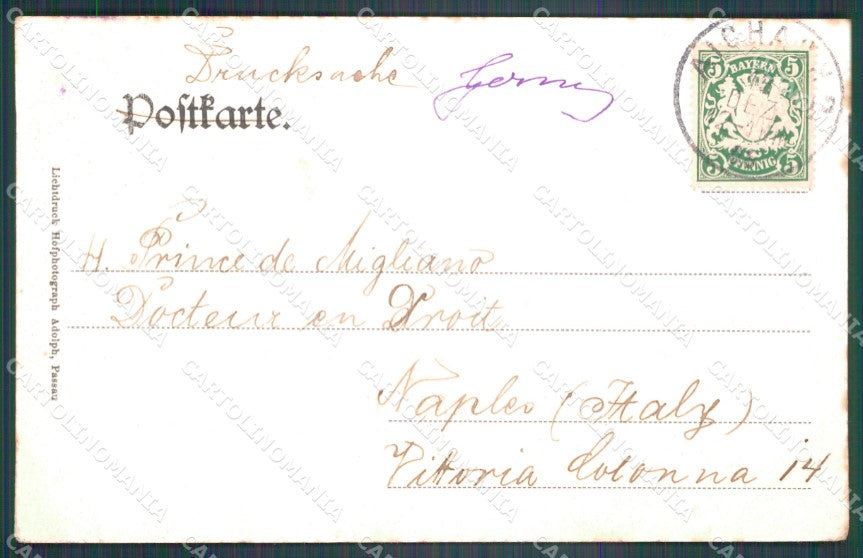 Drucksache
Postkarte.
AICHA
DEZ
5 BAYERN 5
5 PFENNIG 5
H. Prince de Migliano
Docteur en Droit
Naples (Italy)
Vittoria Colonna 14
Lichtdruck Hofphotograph Adolph, Passau
CARTOLINOMANIA